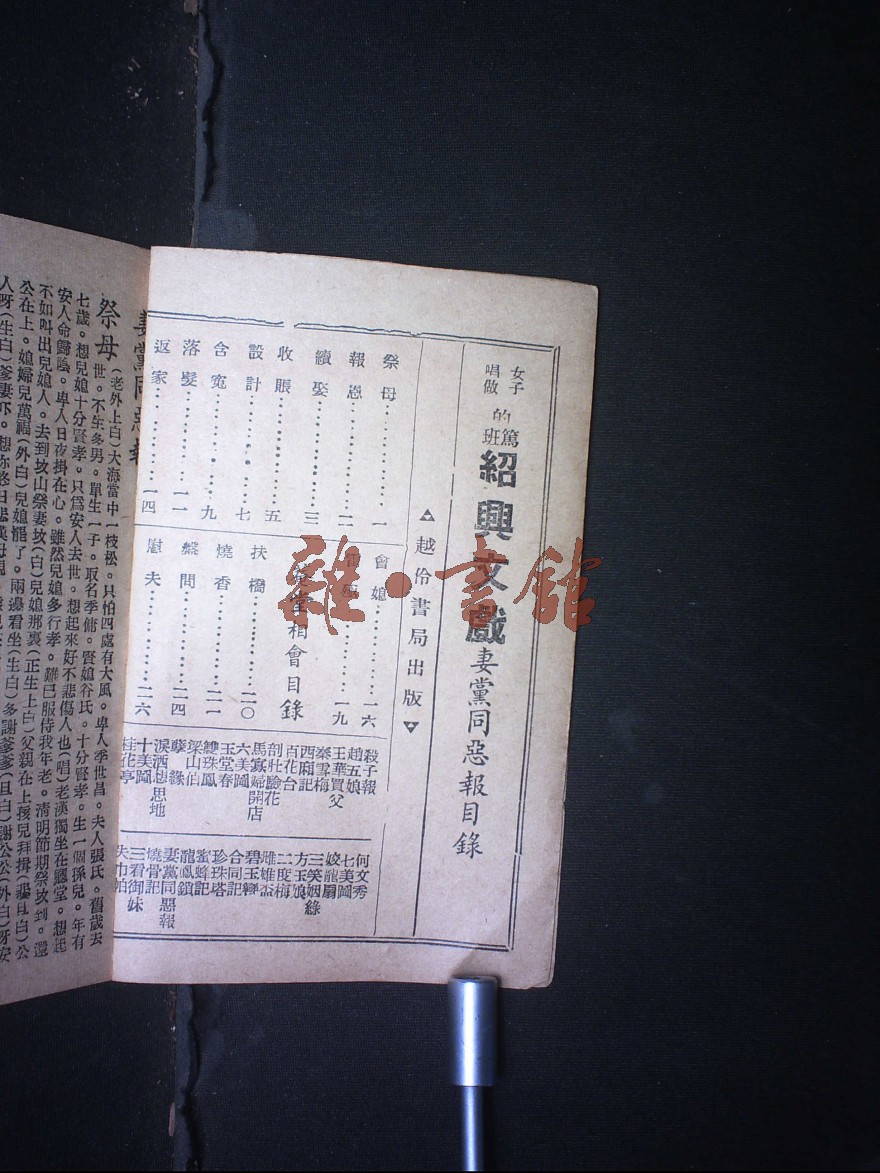 女子
唱做
的
篤班
紹興文戲
妻黨同惡報目錄
越伶書局出版
祭母………一
報恩………二
續娶………三
收賬………五
設計………七
含寃………九
落髮………一一
返家………一四
會媳………一六
一九
堂相會目錄
扶橋………二〇
燒香………二一
盤問………二四
慰夫………二六
殺子報
趙五娘
王華買父
秦雪梅
西廂記
百花台
剖肚驗花
馬寡婦開店
六美圖
玉堂春
雙珠鳳
梁山伯
孽緣
淚洒想思地
十美圖
桂花亭
何文秀
七美圖
姣龍扇
三笑姻緣
方玉娘
二度梅
雌雄盃
碧玉簪
合同記
珍珠塔
蜜蜂記
龍鳳鎖
妻黨同惡報
燒骨記
三看御妹
失巾帕
雜·書館
妻黨同惡報
祭母
(老外上白)大海當中一枝松。只怕四處有大風。卑人季世昌。夫人張氏。舊歲去
世。不生多男。單生一子。取名季脩。賢媳谷氏。十分賢孝。生一個孫兒。年有
七歲。想兒媳十分賢孝。只爲安人去世。想起來好不悲傷人也(唱)老漢獨坐在廳堂。想起
安人命歸陰。卑人日夜掛在心。雖然兒媳多行孝。難已服侍我年老。清明節期祭坟到。還
不如叫出兒媳人。去到坟山祭妻坟(白)兒媳那裏(正生上白)父親在上孩兒拜揖(旦白)公
公在上。媳婦兒萬福(外白)兒媳罷了。兩邊看坐(生白)多謝爹爹(旦白)謝公公(外白)呀安
人呀(生白)爹